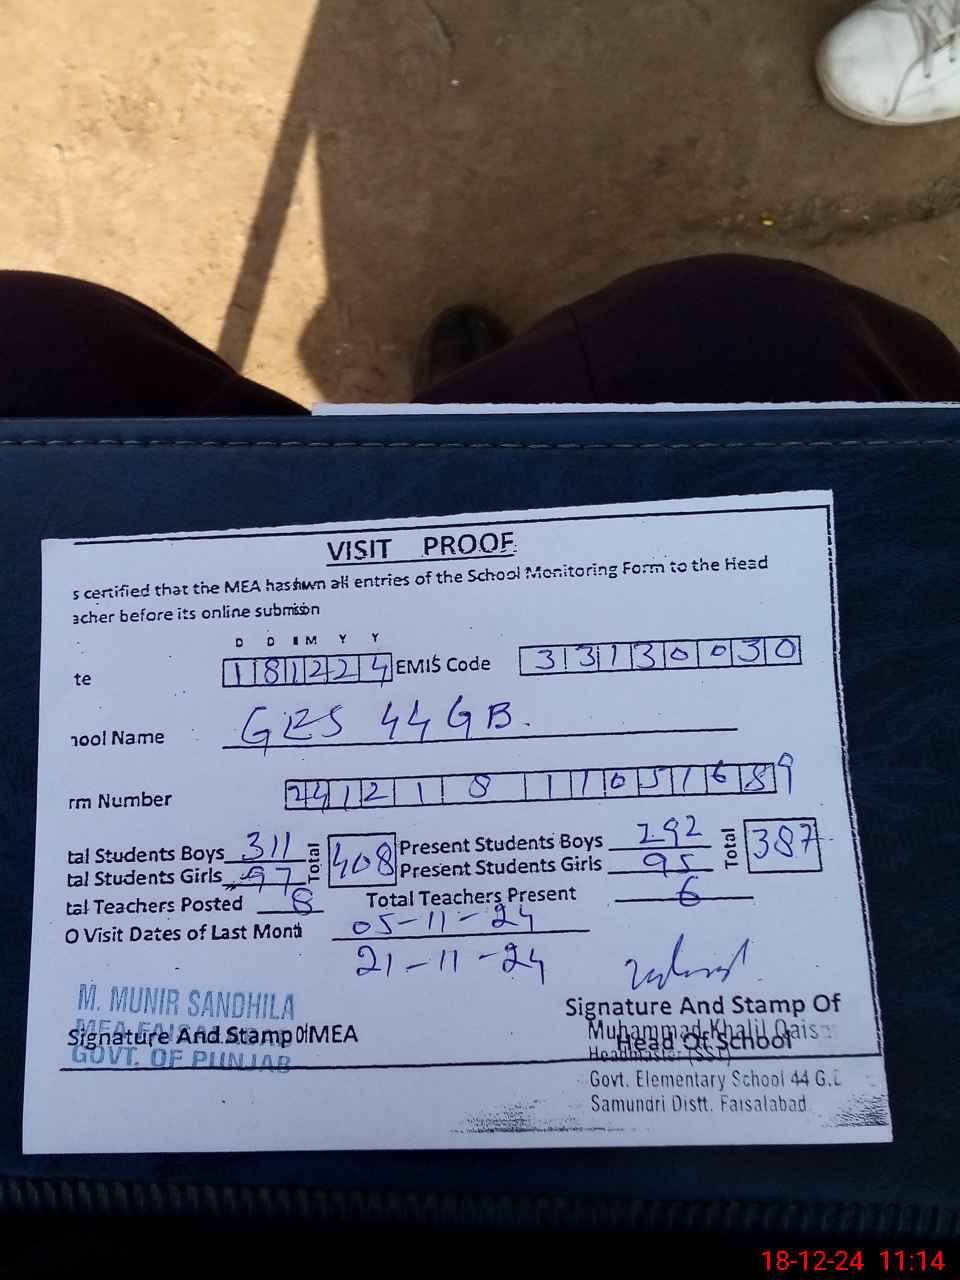 VISIT PROOF
s certified that the MEA has hwn all entries of the School Monitoring Form to the Head
acher before its online submision
D D M Y Y
te 181224 EMIS Code 33130030
hool Name GES 44 GB.
rm Number 2412181105168 9
tal Students Boys 311 Total 408 Present Students Boys 292 Total 387
tal Students Girls 97 Present Students Girls 95
tal Teachers Posted 8 Total Teachers Present 6
O Visit Dates of Last Month 05-11-24
21-11-24
M. MUNIR SANDHILA
MEA FAISALABAD
Signature And Stamp Of MEA
GOVT. OF PUNJAB
Signature And Stamp Of
Head Of School
Muhammad Khalil Qaiser
Headmaster (SST)
Govt. Elementary School 44 G.B
Samundri Distt. Faisalabad
18-12-24 11:14